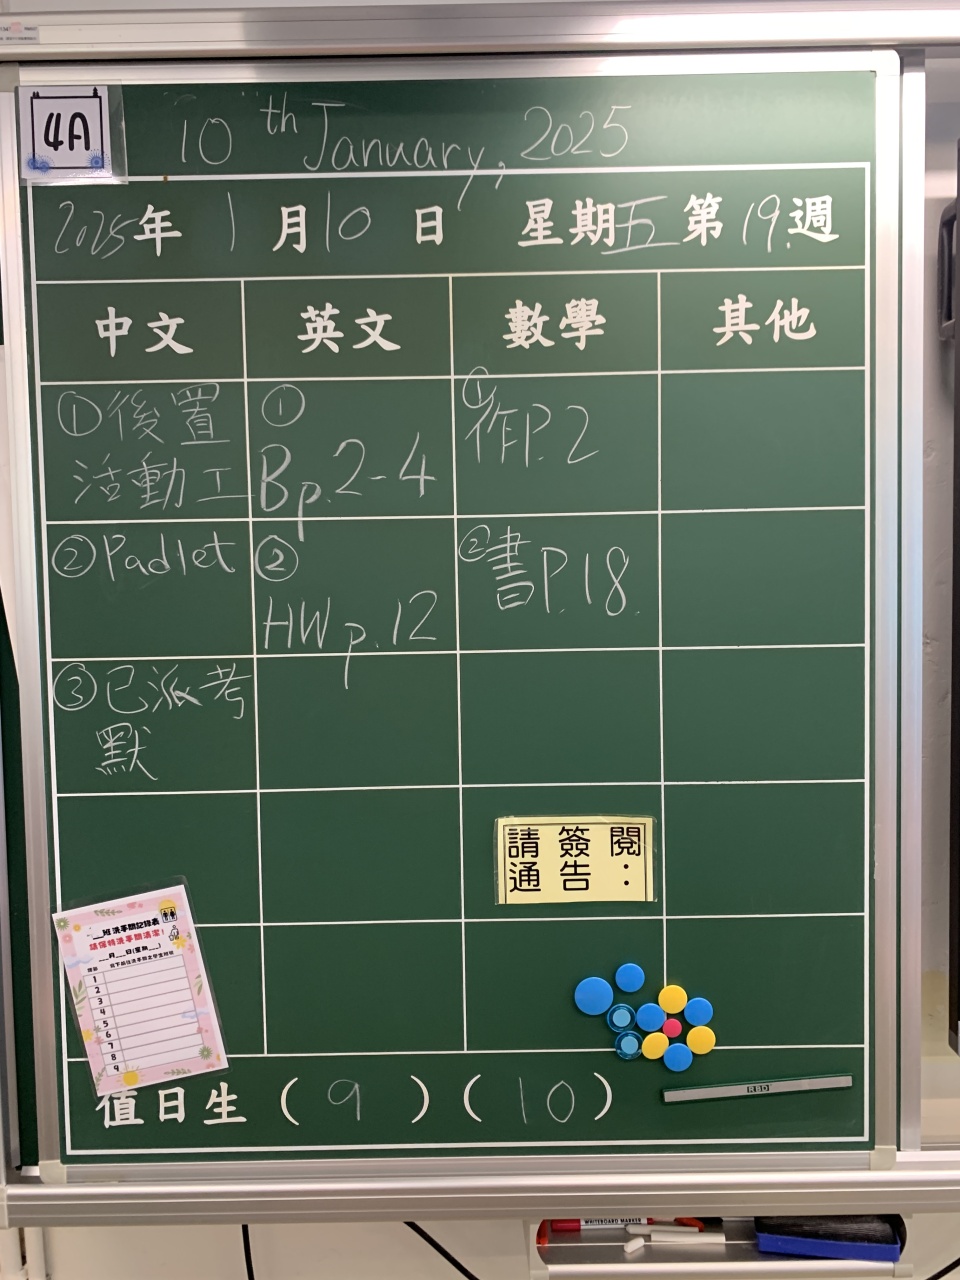 4A
10th January, 2025
2025年 1月10日 星期五 第19週
中文 英文 數學 其他
①後置
活動工
①
Bp.2-4
①
作P.2
②Padlet
②
HW p.12
②書P.18
③已派考
默
請簽閱
通告：
班洗手間記錄表
請保持洗手間清潔！
月 日(星期 )
1
2
3
4
5
6
7
8
9
值日生 ( 9 ) ( 10 )
RBD
WHITEBOARD MARKER